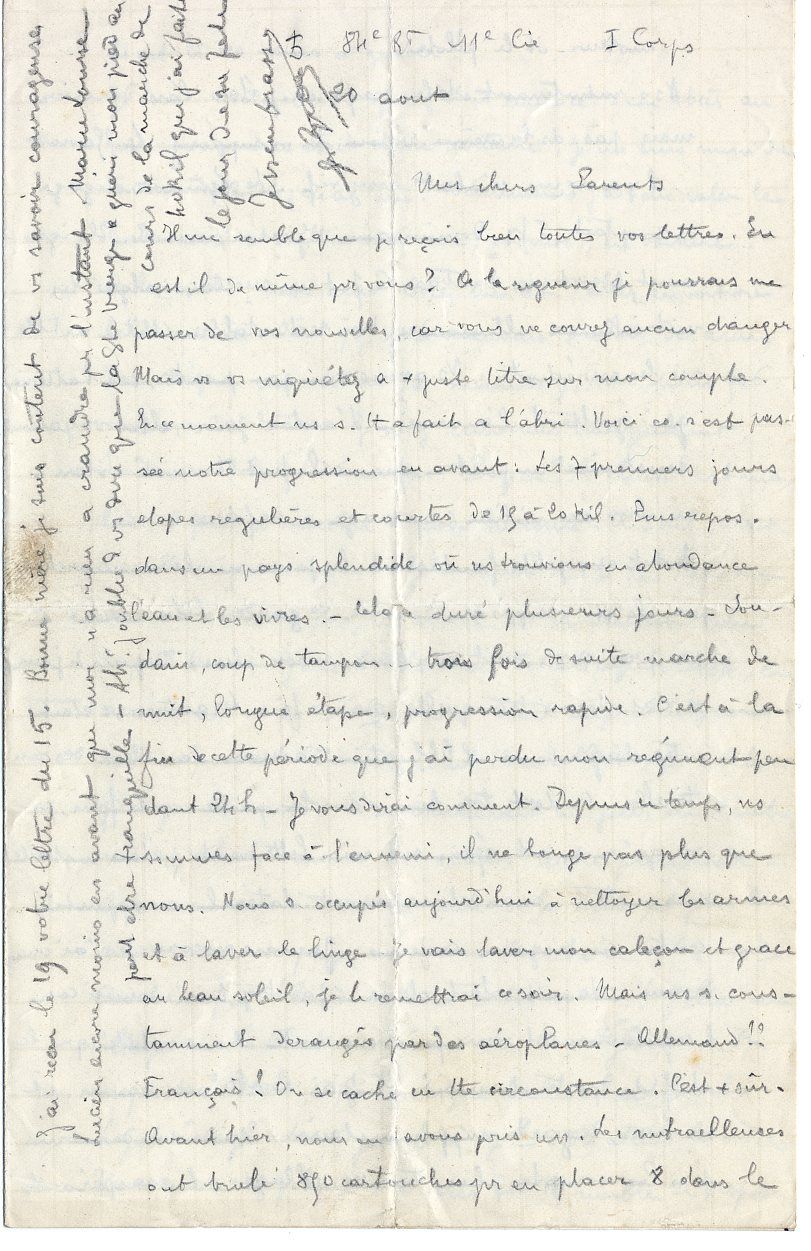 84e RI 11e Cie I Corps
20 aout
Mes chers Parents
Il me semble que je reçois bien toutes vos lettres. En
est il de même pr vous? A la rigueur je pourrais me
passer de vos nouvelles, car vous ne courez aucun danger
Mais vs vs inquiétez a + juste titre sur mon compte.
En ce moment ns s. tt a fait a l'abri. Voici co. s'est pas-
sée notre progression en avant: Les 7 premiers jours
etapes regulières et courtes de 15 à 20 kil. Puis repos.
dans un pays splendide où ns trouvions en abondance
l'eau et les vivres. - Cela a duré plusieurs jours - Sou-
dain, coup de tampon - trois fois de suite marche de
nuit, longue étape, progression rapide. C'est à la
fin de cette période que j'ai perdu mon regiment pen
dant 24h - Je vous dirai comment. Depuis ce temps, ns
sommes face à l'ennemi, il ne bouge pas plus que
nous. Nous s. occupés aujourd'hui à nettoyer les armes
et à laver le linge Je vais laver mon caleçon et grace
au beau soleil, je le remettrai ce soir. Mais ns s. cons-
tamment derangés par des aéroplanes - Allemand!?
Français! On se cache en tte circonstance. C'est + sûr.
Avant hier, nous en avons pris un. Les mitrailleuses
ont brulé 850 cartouches pr en placer 8 dans le
J'ai recu le 19 votre lettre du 15. Bonne mère je suis content de vs savoir courageuse
encore moins en avant que moi n'a rien a craindre pr l'instant. Marie Louise
peut etre + tranquille - Ah! j'oubliais de vs dire que la Ste Vierge a guéri mon pied au
cours de la marche de
kil que j'ai faite
le jour de sa fete
Je vs embrasse